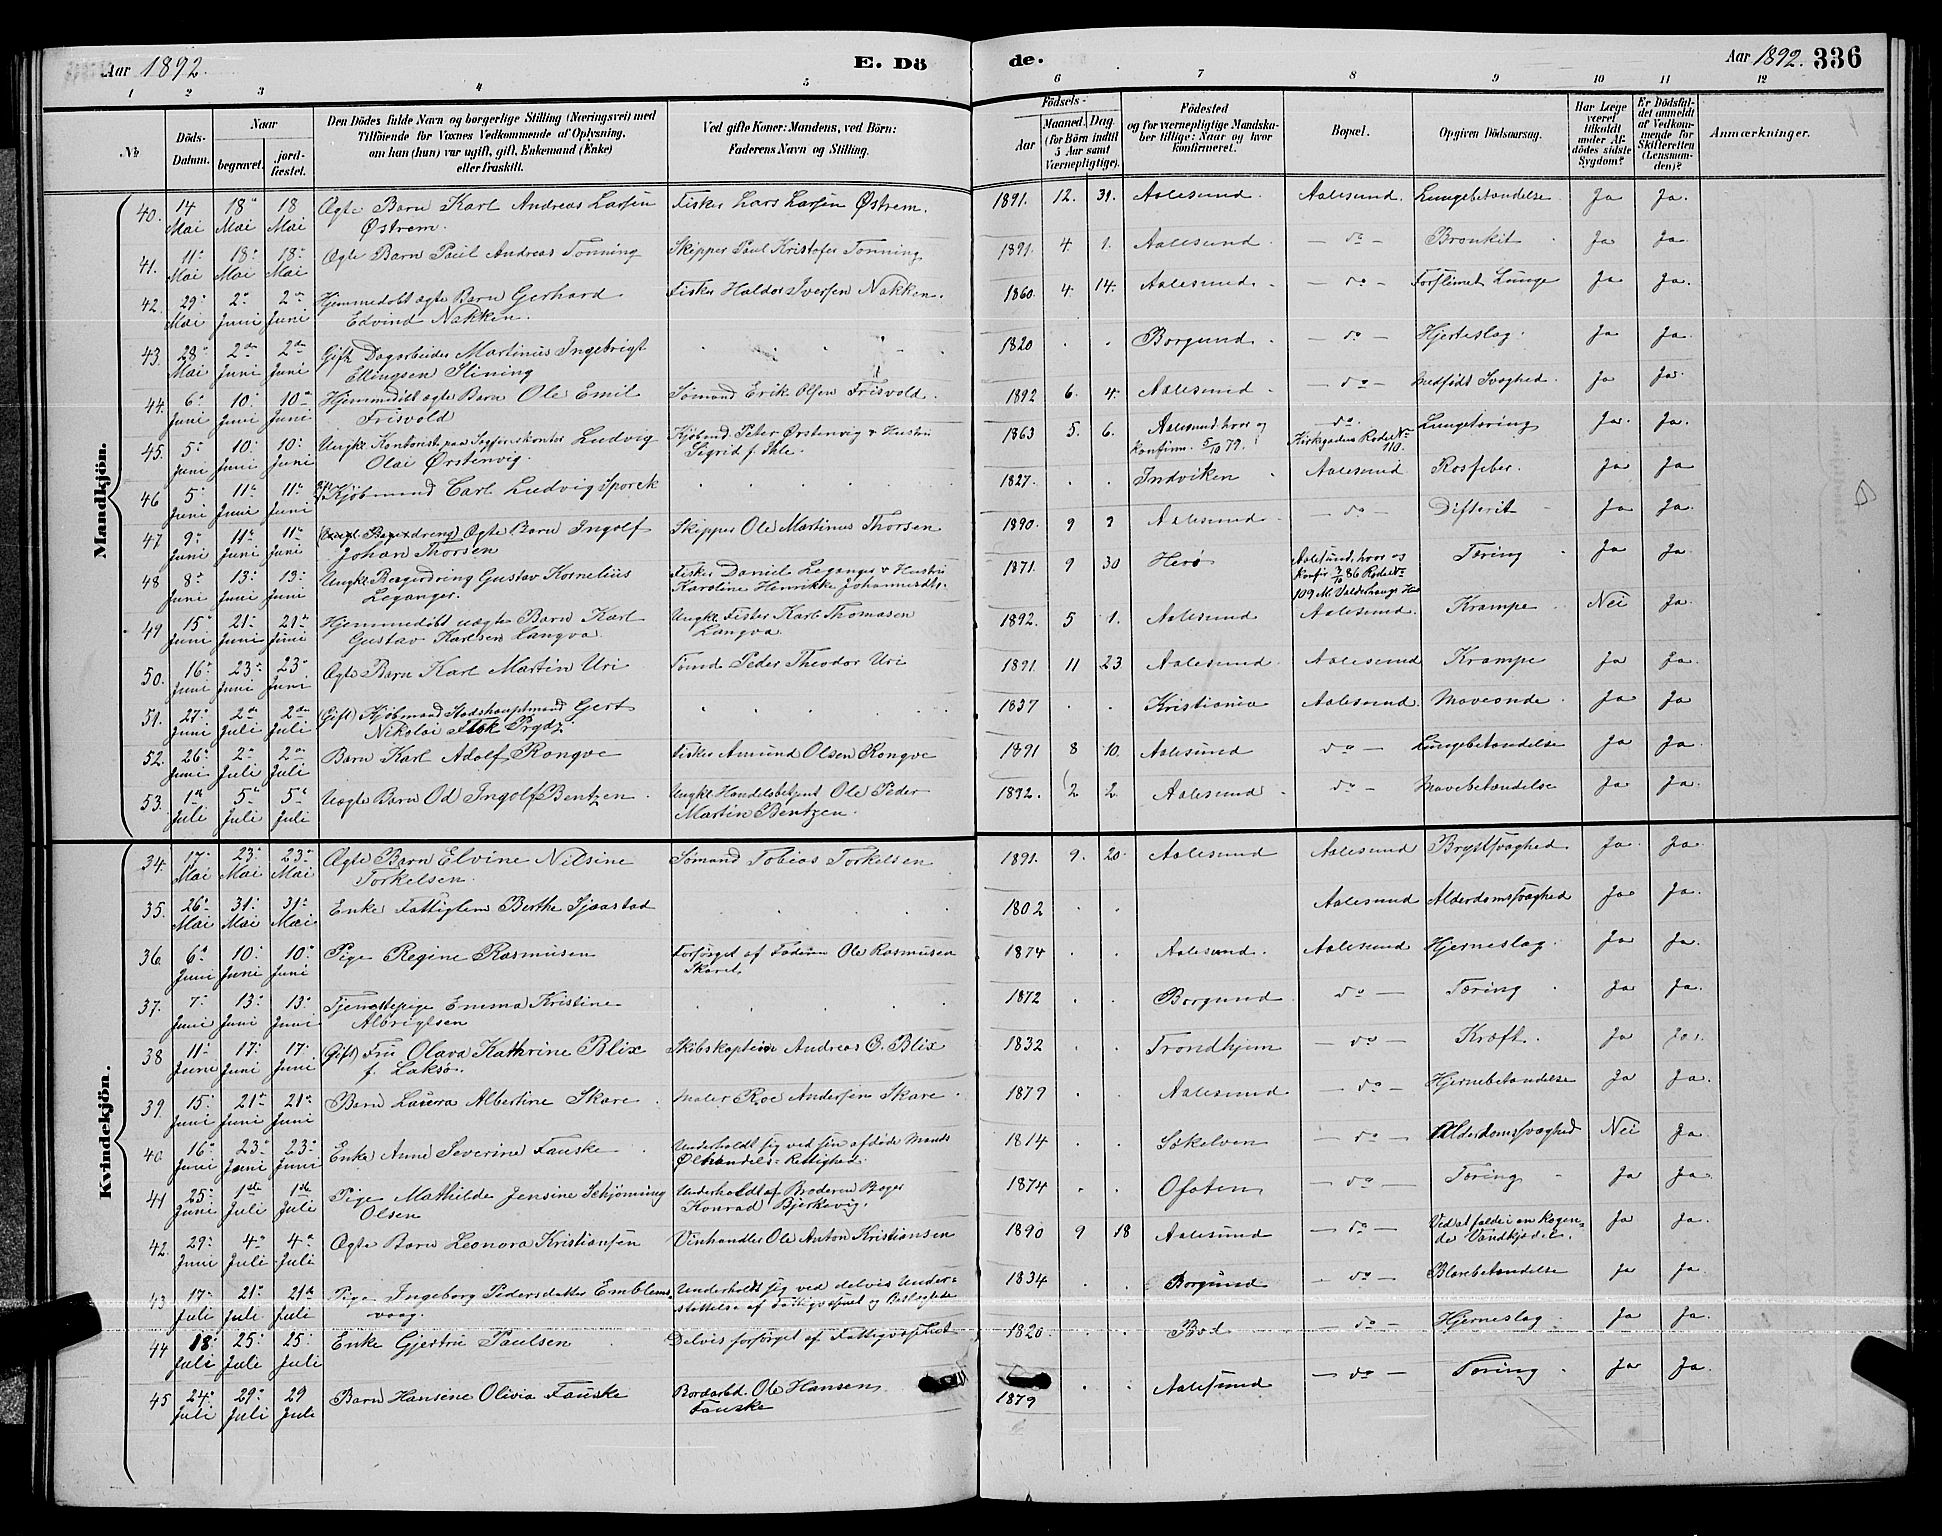 Aar 1892. E. Dö de. Aar 1892. 336
1 2 3 4 5 6 7 8 9 10 11 12
№ Döds-Datum. Naar begravet. jord-fæstet. Den Dödes fulde Navn og borgerlige Stilling (Næringsvei) med Tilföiende for Voxnes Vedkommende af Oplysning, om han (hun) var ugift, gift, Enkemand (Enke) eller fraskilt. Ved gifte Koner: Mandens, ved Börn: Faderens Navn og Stilling. Födsels- Aar Maaned. Dag. (for Börn indtil 5 Aar samt Værnepligtige). Födested og for værnepligtige Mandska-ber tillige: Naar og hvor konfirmeret. Bopæl. Opgiven Dödsaarsag. Har Læge været tilkaldt under Af-dödes sidste Sygdom? Er Dödsfal-det anmeldt af Vedkom-mende for Skifteretten (Lensman-den)? Anmærkninger.
Mandkjön.
40. 14 Mai 18 Mai 18 Mai Ægte Barn Karl Andreas Larsen Østrem. Fisker Lars Larsen Østrem. 1891. 12. 31. Aalesund. Aalesund. Lungebetændelse. Ja Ja.
41. 11 Mai 18 Mai 18 Mai Ægte Barn Paul Andreas Tonning Skipper Paul Kristofer Tonning 1891. 4. 1. Aalesund. — do — Bronkit Ja Ja.
42. 29 Mai 2 Juni 2 Juni Hjemmedøbt ægte Barn Gerhard Edvind Nakken. Fisker Haldor Iversen Nakken. 1860. 4. 14. Aalesund. — do — Forslimet Lunge Ja Ja.
43. 28 Mai 2den Juni 2den Juni Gift Dagarbeider Martinus Ingebrigt Ellingsen Slining 1820 Borgund. — do — Hjerteslag. Ja Ja.
44. 6 Juni 10 Juni 10 Juni Hjemmedøbt ægte Barn Ole Emil Frisvold Sømand Erik Olsen Frisvold. 1892 6. 4. Aalesund — do — Medfødt Svaghed. Ja Ja.
45. 5 Juni 10 Juni 10 Juni Ungkl. Kontorist paa Sagførerkontor Ludvig Olai Ørstenvig. Kjøbmd. Peter Ørstenvig & Hustru Sigrid f. Ihle. 1863 5. 6. Aalesund hvor og konfirm. 5/10 79. do. Kirkegadens Rode No 110. Lungetæring Ja. Ja.
46 5 Juni 11 Juni 11 Juni Kjøbmand Carl Ludvig Sporck 1827. Indviken Aalesund Rosfeber. Ja Ja.
47 9 Juni 11 Juni 11 Juni Ægte Barn Ingolf Johan Thorsen Skipper Ole Martinus Thorsen 1890. 9 9 Aalesund — do — Difterit Ja Ja.
48 8 Juni 13 Juni 13 Juni Ungkl. Bagerdreng Gustav Kornelius Leganger. Fisker Daniel Leganger & Hustru Karoline Henrikke Johannesdtr. 1871. 9 30 Herø Aalesund, hvor og konfir 3/10 86 Rode No 109 M. Valderhaugs Hus Tæring Ja Ja.
49 15 Juni 21 Juni 21 Juni Hjemmedøbt uægte Barn Karl Gustav Karlsen Langva. Ungkl. Fisker Karl Thomasen Langva 1892. 5 1. Aalesund Aalesund. Krampe Nei Ja.
50. 16 Juni 23 Juni 23 Juni Ægte Barn Karl Martin Uri Sømd Peder Theodor Uri 1891. 11 23 Aalesund. Aalesund Krampe Ja Ja.
51. 27 Juni 2den Juli 2den Juli (Gift) Kjøbmand Stadshauptmand Gert Nikolai Prydz 1837 Kristiania Aalesund. Maveonde Ja Ja.
52. 26 Juni 2 Juli 2 Juli Barn Karl Adolf Rongve Fisker Amund Olsen Rongve 1891 8 10. Aalesund do — Lungebetændelse Ja Ja.
53. 1 Juli 5 Juli 5 Juli Uægte Barn Od Ingolf Bentzen. Ungkl. Handelsbetjent Ole Peder Martin Bentzen. 1892. 2 2. Aalesund do — Mavebetændelse Ja Ja.
Kvindekjön.
34. 17 Mai 23 Mai 23 Mai Ægte Barn Elvine Nilsine Torkelsen. Sømand Tobias Torkelsen 1891. 9. 20. Aalesund Aalesund Brystsvaghed. Ja. Ja.
35. 26 Mai 31 Mai 31 Mai Enke Fattiglem Berthe Sjaastad 1802 Aalesund Alderdomssvaghed Ja Ja.
36 6 Juni 10 Juni 10 Juni Pige Regine Rasmusen Forsørget af Faderen Ole Rasmusen Skaret. 1874 Aalesund. Aalesund Hjerneslag. Ja Ja.
37. 7 Juni 13 Juni 13 Juni Tjenestepige Emma Kristine Albrigtsen 1872 Borgund do — Tæring Ja Ja.
38 11 Juni 17 Juni 17 Juni (Gift) Fru Olava Kathrine Blix f. Laksø. Skibskaptein Andreas C. Blix 1832 Trondhjem — do — Kræft. Ja Ja.
39. 15 Juni 21 Juni 21 Juni Barn Laura Albertine Skare. Maler Roe Andersen Skare. 1879 Aalesund — do — Hjernebetændelse Ja Ja.
40. 16 Juni 23 Juni 23 Juni Enke Anne Severine Fauske. Underholdt sig ved sin afdøde Mands Ølhandels-Rettighed. 1814 Søkelven — do — Alderdomssvaghed Nei Ja.
41 25 Juni 1ste Juli 1ste Juli Pige Mathilde Jensine Schjønning Olsen Underholdt af Broderen Bager Konrad Bjerkevig. 1874 Ofoten — do — Tæring Ja Ja.
42. 29 Juni 4 Juli 4 Juli Ægte Barn Leonora Kristiansen Vinhandler Ole Anton Kristiansen 1890 9 18 Aalesund — do — Ved at falde i en kogen-de Vandkjedel. Ja Ja.
43 17 Juli 21 Juli 21 Juli Pige Ingeborg Pedersdatter Emblems-vaag Underholdt sig ved delvis Under-støttelse af Fattigvæsnet og Beslægtede 1834 Borgund — do — Blærebetændelse Ja Ja.
44 18 Juli 25 Juli 25 Juli Enke Gjertru Paulsen Delvis forsørget af Fattigvæsenet 1820 Bod — do — Hjerneslag Ja Ja.
45 24 Juli 29 Juli 29 Juli Barn Hansine Olivia Fauske Bordarbd. Ole Hansen Fauske 1879 Aalesund — do — Tæring Ja Ja.